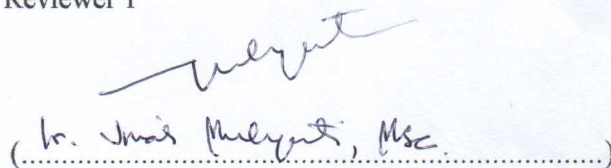 Reviewer 1
(Ir. Mulyanti, MSc.)